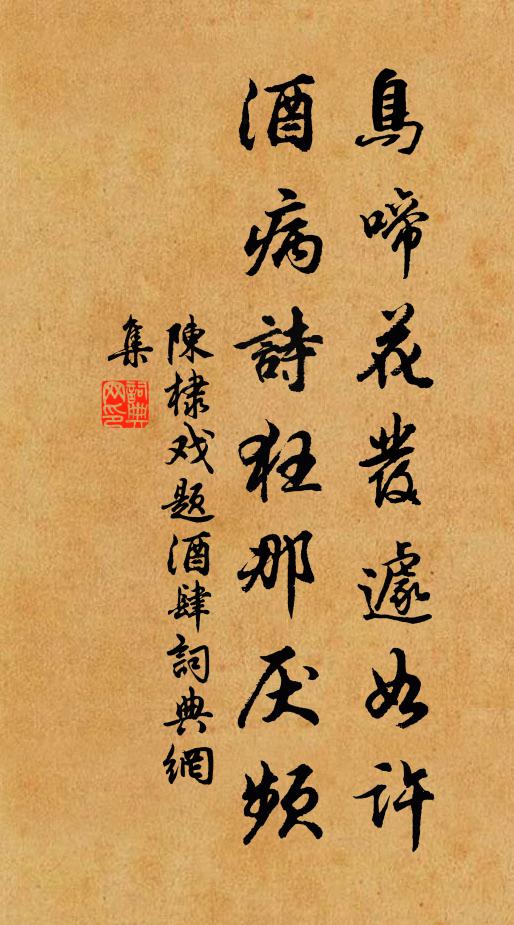 鳥啼花發遽如許
酒病詩狂那厌頻
陳棣戏题酒肆詞典網
集
詞典
网印